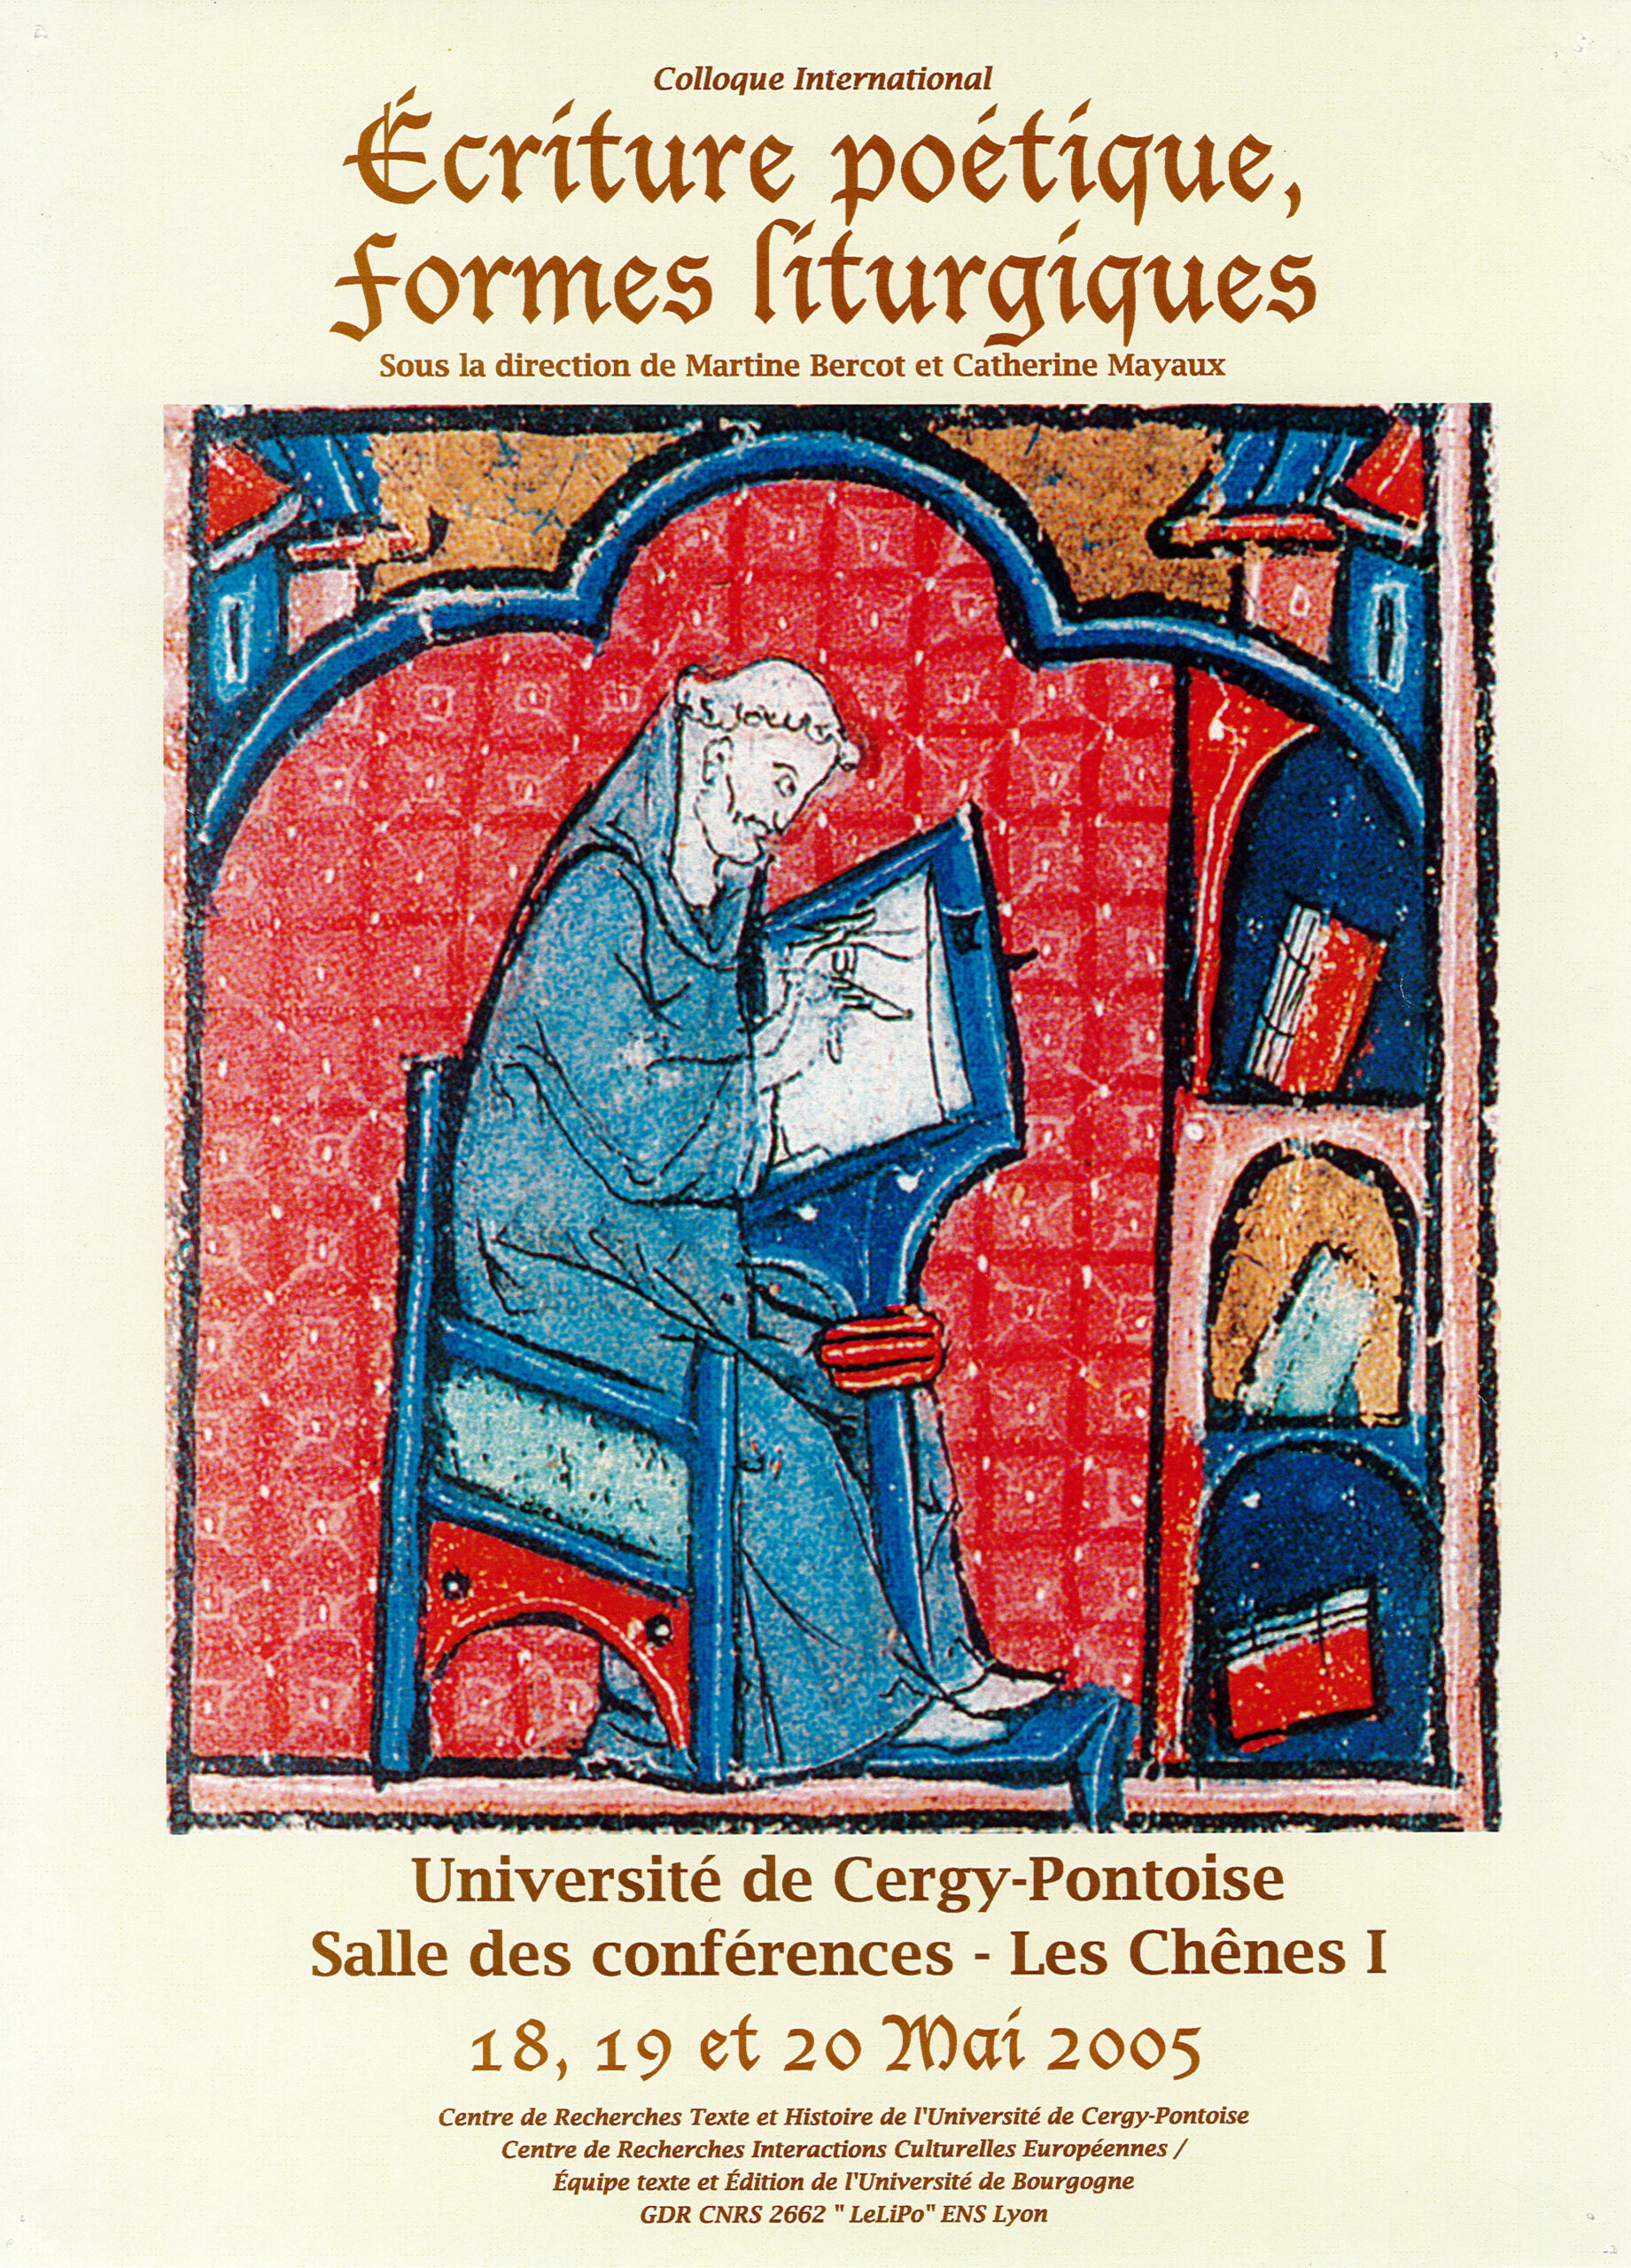 Colloque International
Écriture poétique,
formes liturgiques
Sous la direction de Martine Bercot et Catherine Mayaux
Université de Cergy-Pontoise
Salle des conférences - Les Chênes I
18, 19 et 20 Mai 2005
Centre de Recherches Texte et Histoire de l'Université de Cergy-Pontoise
Centre de Recherches Interactions Culturelles Européennes /
Équipe texte et Édition de l'Université de Bourgogne
GDR CNRS 2662 " LeLiPo" ENS Lyon